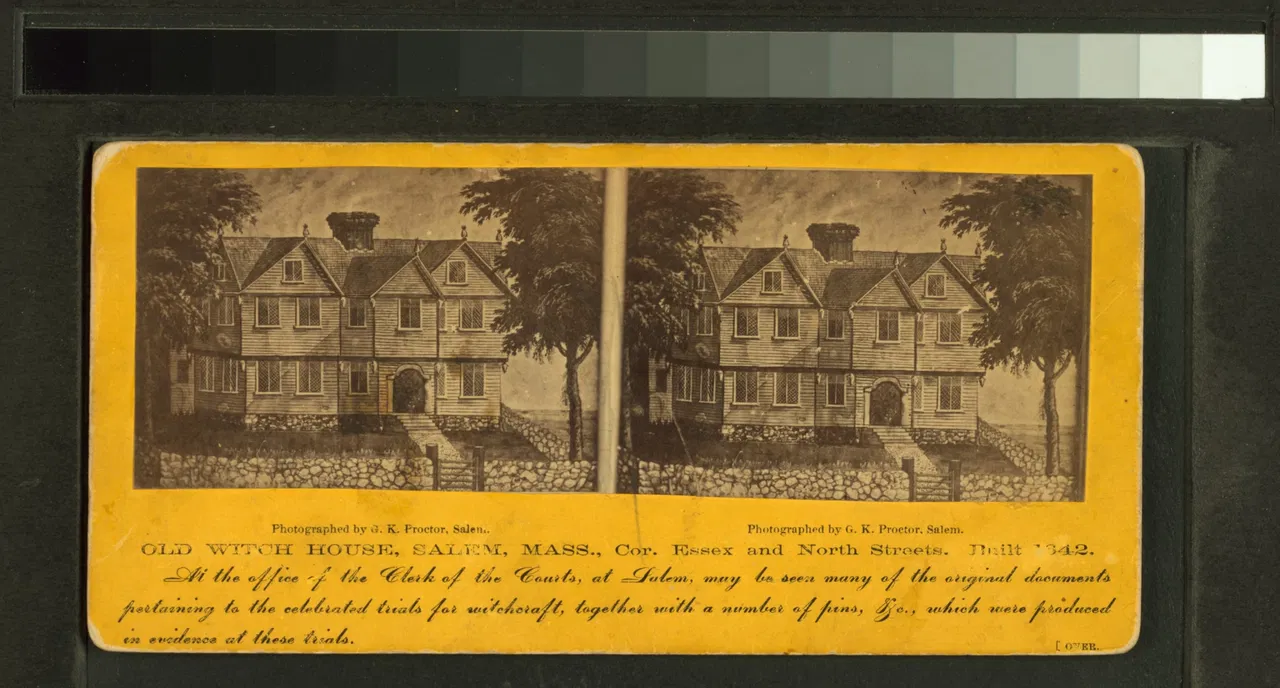 Photographed by G. K. Proctor, Salem. Photographed by G. K. Proctor, Salem.
OLD WITCH HOUSE, SALEM, MASS., Cor. Essex and North Streets. Built 1642.
At the office of the Clerk of the Courts, at Salem, may be seen many of the original documents
pertaining to the celebrated trials for witchcraft, together with a number of pins, &c., which were produced
in evidence at these trials.
[OVER.